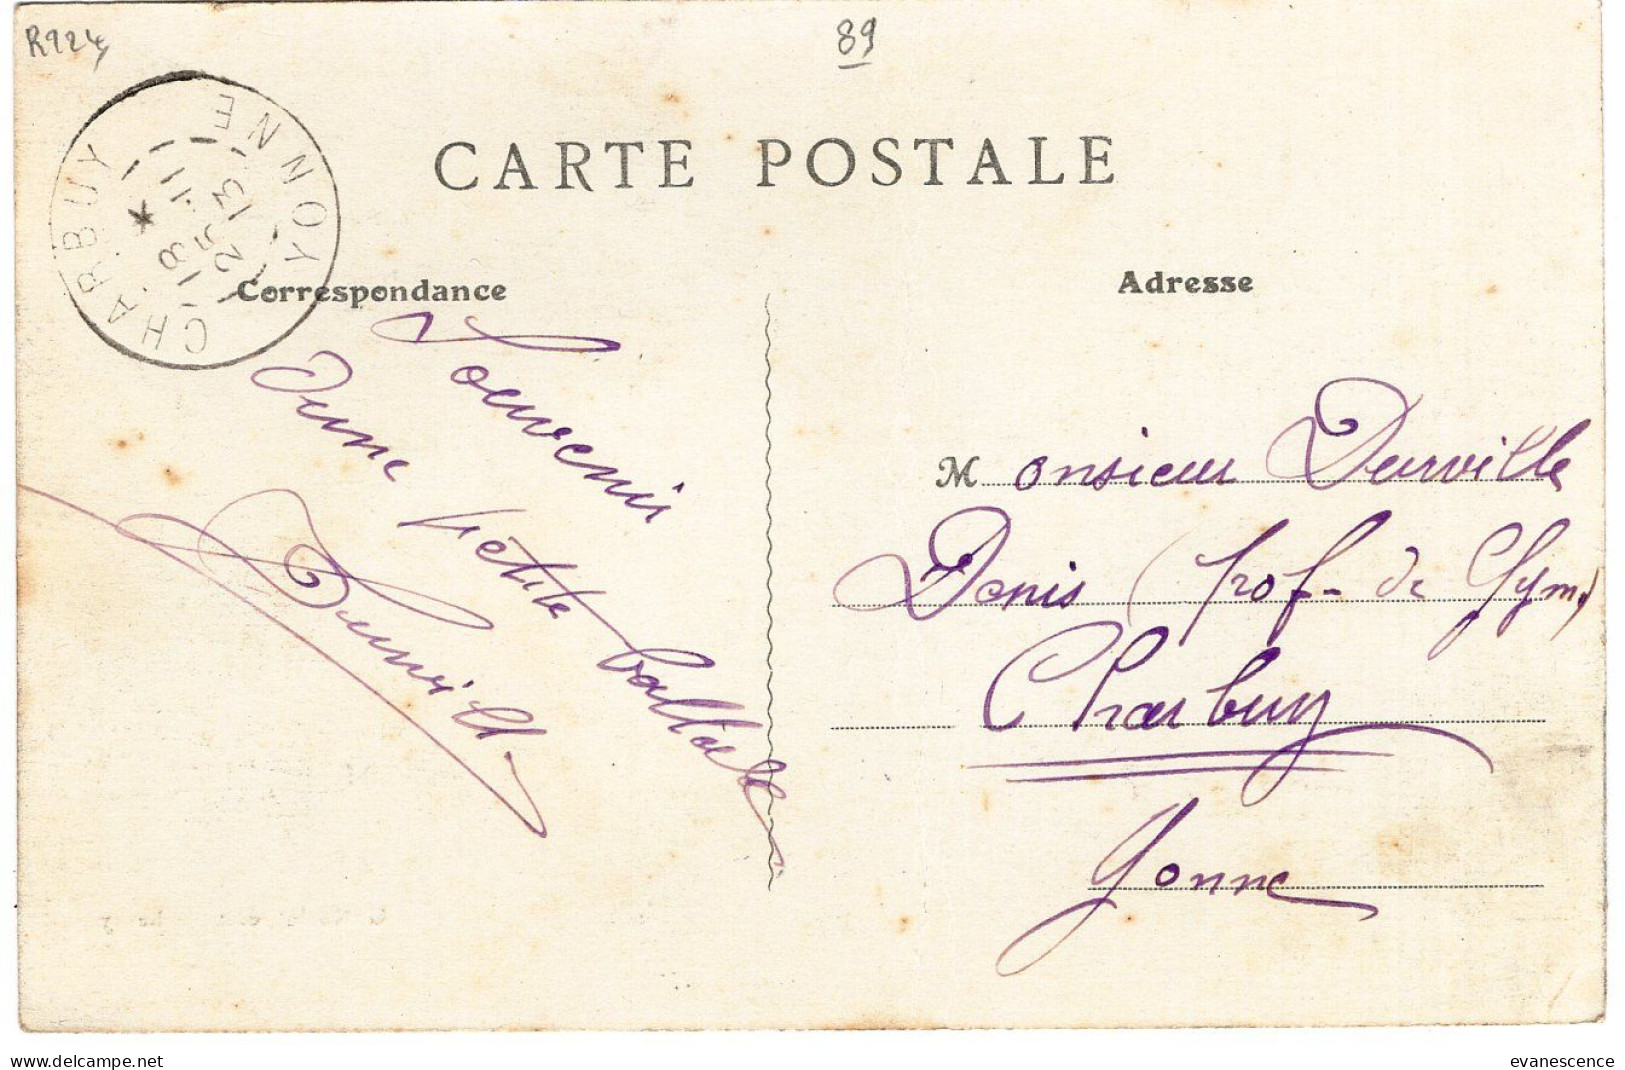 R924
89
CHARBUY YONNE
18 *
25-11
13
CARTE POSTALE
Correspondance
Adresse
Souvenir
d'une petite ballade
Durville
Monsieur Durville
Denis (Prof. de Gym.)
Charbuy
Yonne
www.delcampe.net
evanescence